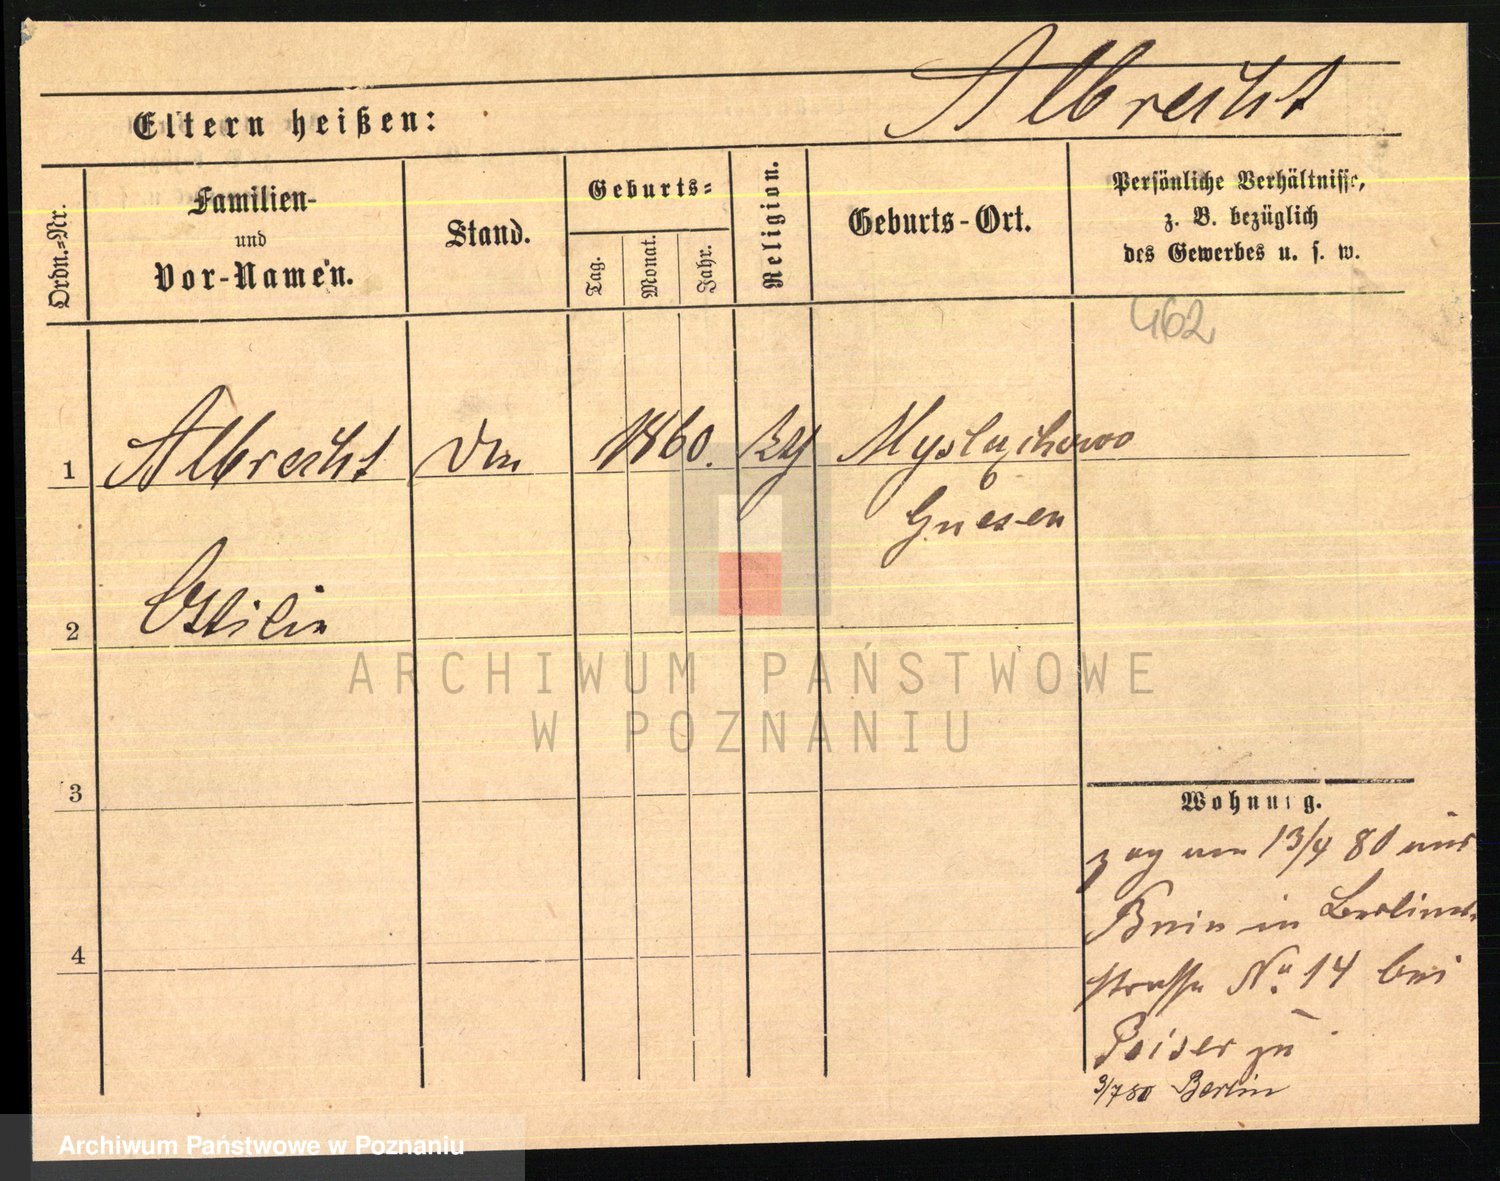 Albrecht
Eltern heißen:
Ordn.=Nr.
Familien-
und
Vor-Namen.
Stand.
Geburts=
Tag.
Monat.
Jahr.
Religion.
Geburts-Ort.
Persönliche Verhältnisse,
z. B. bezüglich
des Gewerbes u. s. w.
462
1
Albrecht
1860.
Gnesen
2
3
4
Wohnung.
zog am 13/4 80 aus
Bnin in Berliner
strasse No 14 bei
Peiser zu
9/7 80 Berlin
ARCHIWUM PAŃSTWOWE
W POZNANIU
Archiwum Państwowe w Poznaniu